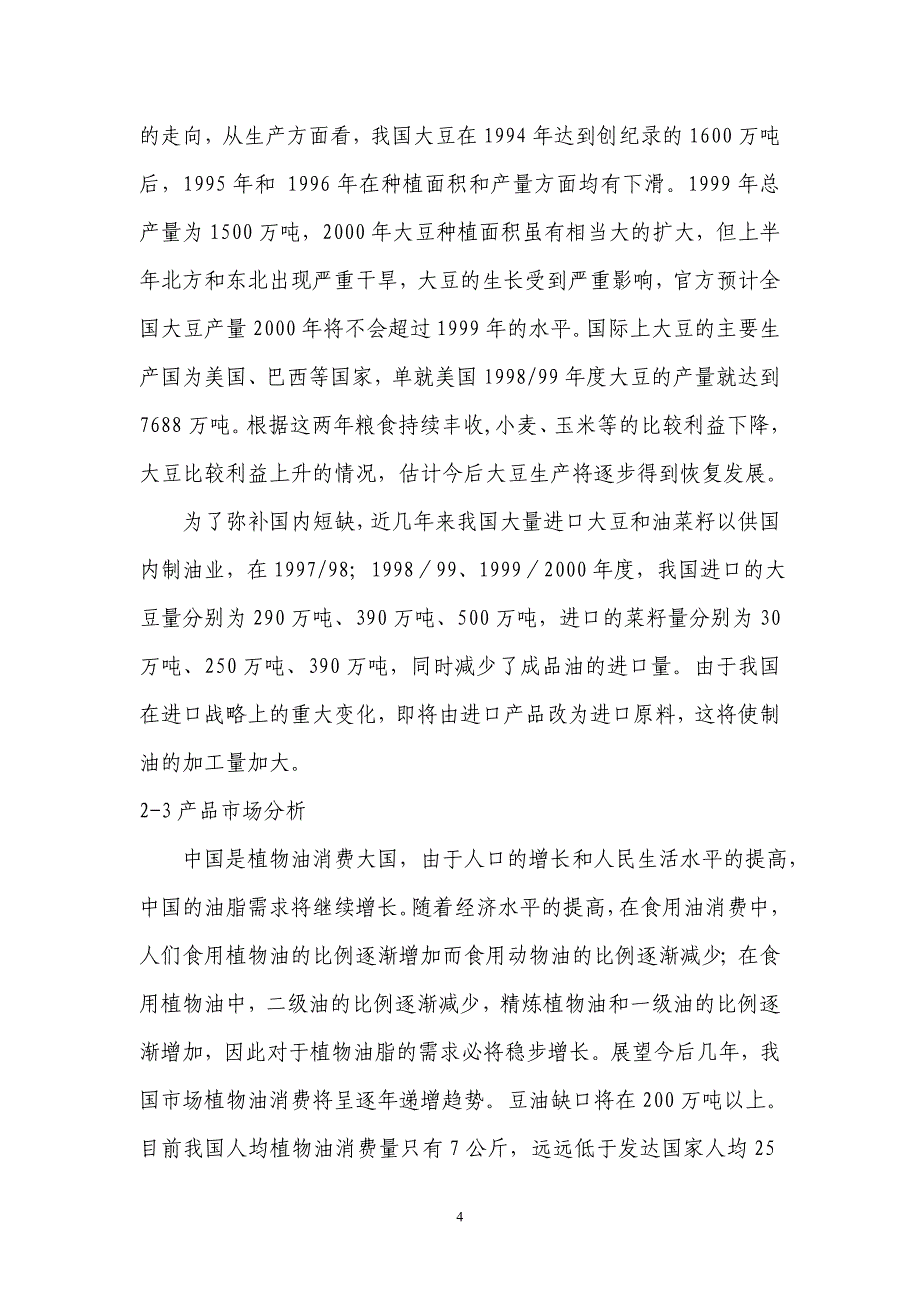 的走向，从生产方面看，我国大豆在 1994 年达到创纪录的 1600 万吨
后，1995 年和 1996 年在种植面积和产量方面均有下滑。1999 年总
产量为 1500 万吨，2000 年大豆种植面积虽有相当大的扩大，但上半
年北方和东北出现严重干旱，大豆的生长受到严重影响，官方预计全
国大豆产量 2000 年将不会超过 1999 年的水平。国际上大豆的主要生
产国为美国、巴西等国家，单就美国 1998/99 年度大豆的产量就达到
7688 万吨。根据这两年粮食持续丰收,小麦、玉米等的比较利益下降，
大豆比较利益上升的情况，估计今后大豆生产将逐步得到恢复发展。
为了弥补国内短缺，近几年来我国大量进口大豆和油菜籽以供国
内制油业，在 1997/98；1998／99、1999／2000 年度，我国进口的大
豆量分别为 290 万吨、390 万吨、500 万吨，进口的菜籽量分别为 30
万吨、250 万吨、390 万吨，同时减少了成品油的进口量。由于我国
在进口战略上的重大变化，即将由进口产品改为进口原料，这将使制
油的加工量加大。
2-3 产品市场分析
中国是植物油消费大国，由于人口的增长和人民生活水平的提高，
中国的油脂需求将继续增长。随着经济水平的提高，在食用油消费中，
人们食用植物油的比例逐渐增加而食用动物油的比例逐渐减少；在食
用植物油中，二级油的比例逐渐减少，精炼植物油和一级油的比例逐
渐增加，因此对于植物油脂的需求必将稳步增长。展望今后几年，我
国市场植物油消费将呈逐年递增趋势。豆油缺口将在 200 万吨以上。
目前我国人均植物油消费量只有 7 公斤，远远低于发达国家人均 25
4